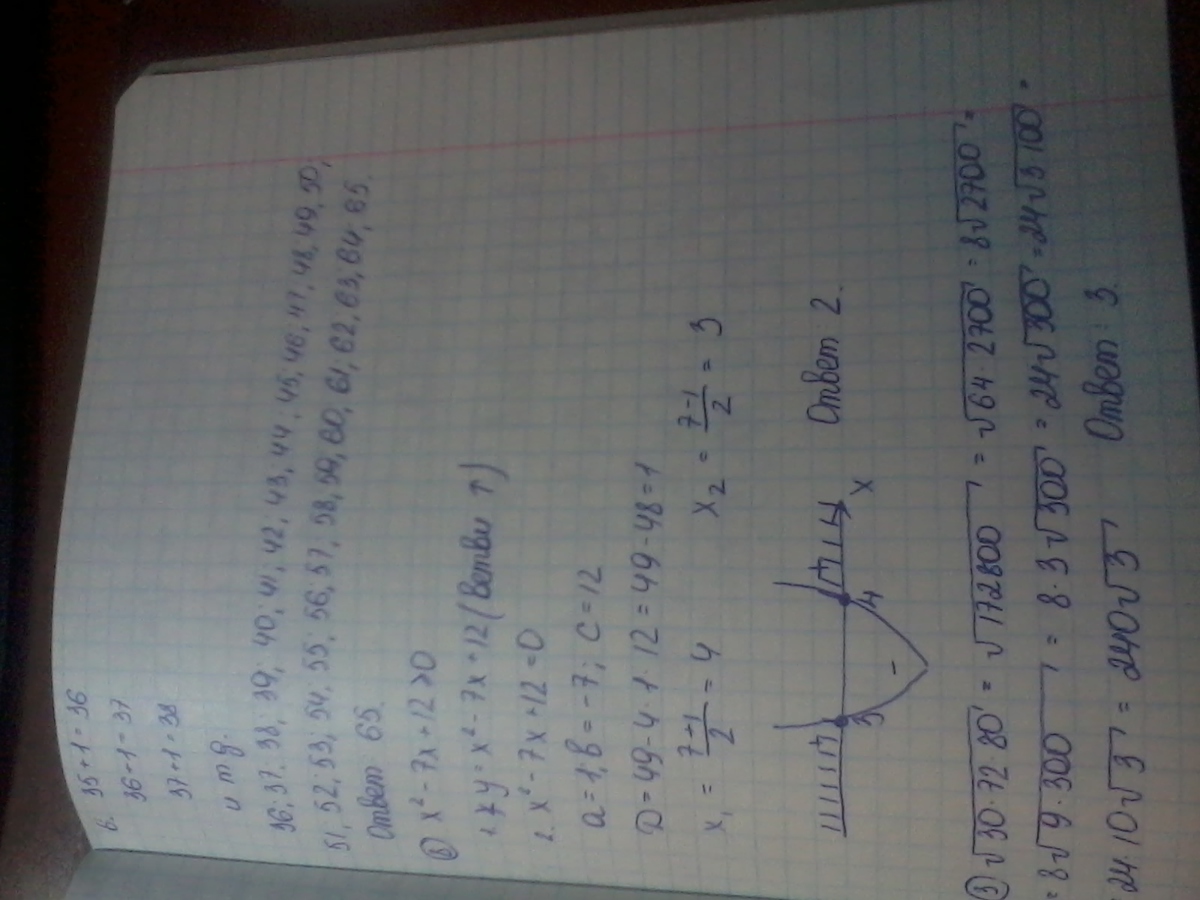 6. 35+1=36
36+1=37
37+1=38
и т д.
36; 37; 38; 39; 40; 41; 42; 43; 44; 45; 46; 47; 48; 49; 50;
51; 52; 53; 54; 55; 56; 57; 58; 59; 60; 61; 62; 63; 64; 65.
Ответ 65.
⑧ x² - 7x + 12 > 0
1. y = x² - 7x + 12 (ветви ↑)
2. x² - 7x + 12 = 0
a = 1; b = -7; c = 12
D = 49 - 4 · 1 · 12 = 49 - 48 = 1
x₁ = (7+1)/2 = 4 x₂ = (7-1)/2 = 3
3 - 4 x Ответ: 2.
√30·72·80 = √172800 = √64·2700 = 8√2700 =
= 8√9·300 = 8·3√300 = 24√300 = 24√3·100 =
24·10√3 = 240√3 Ответ: 3.